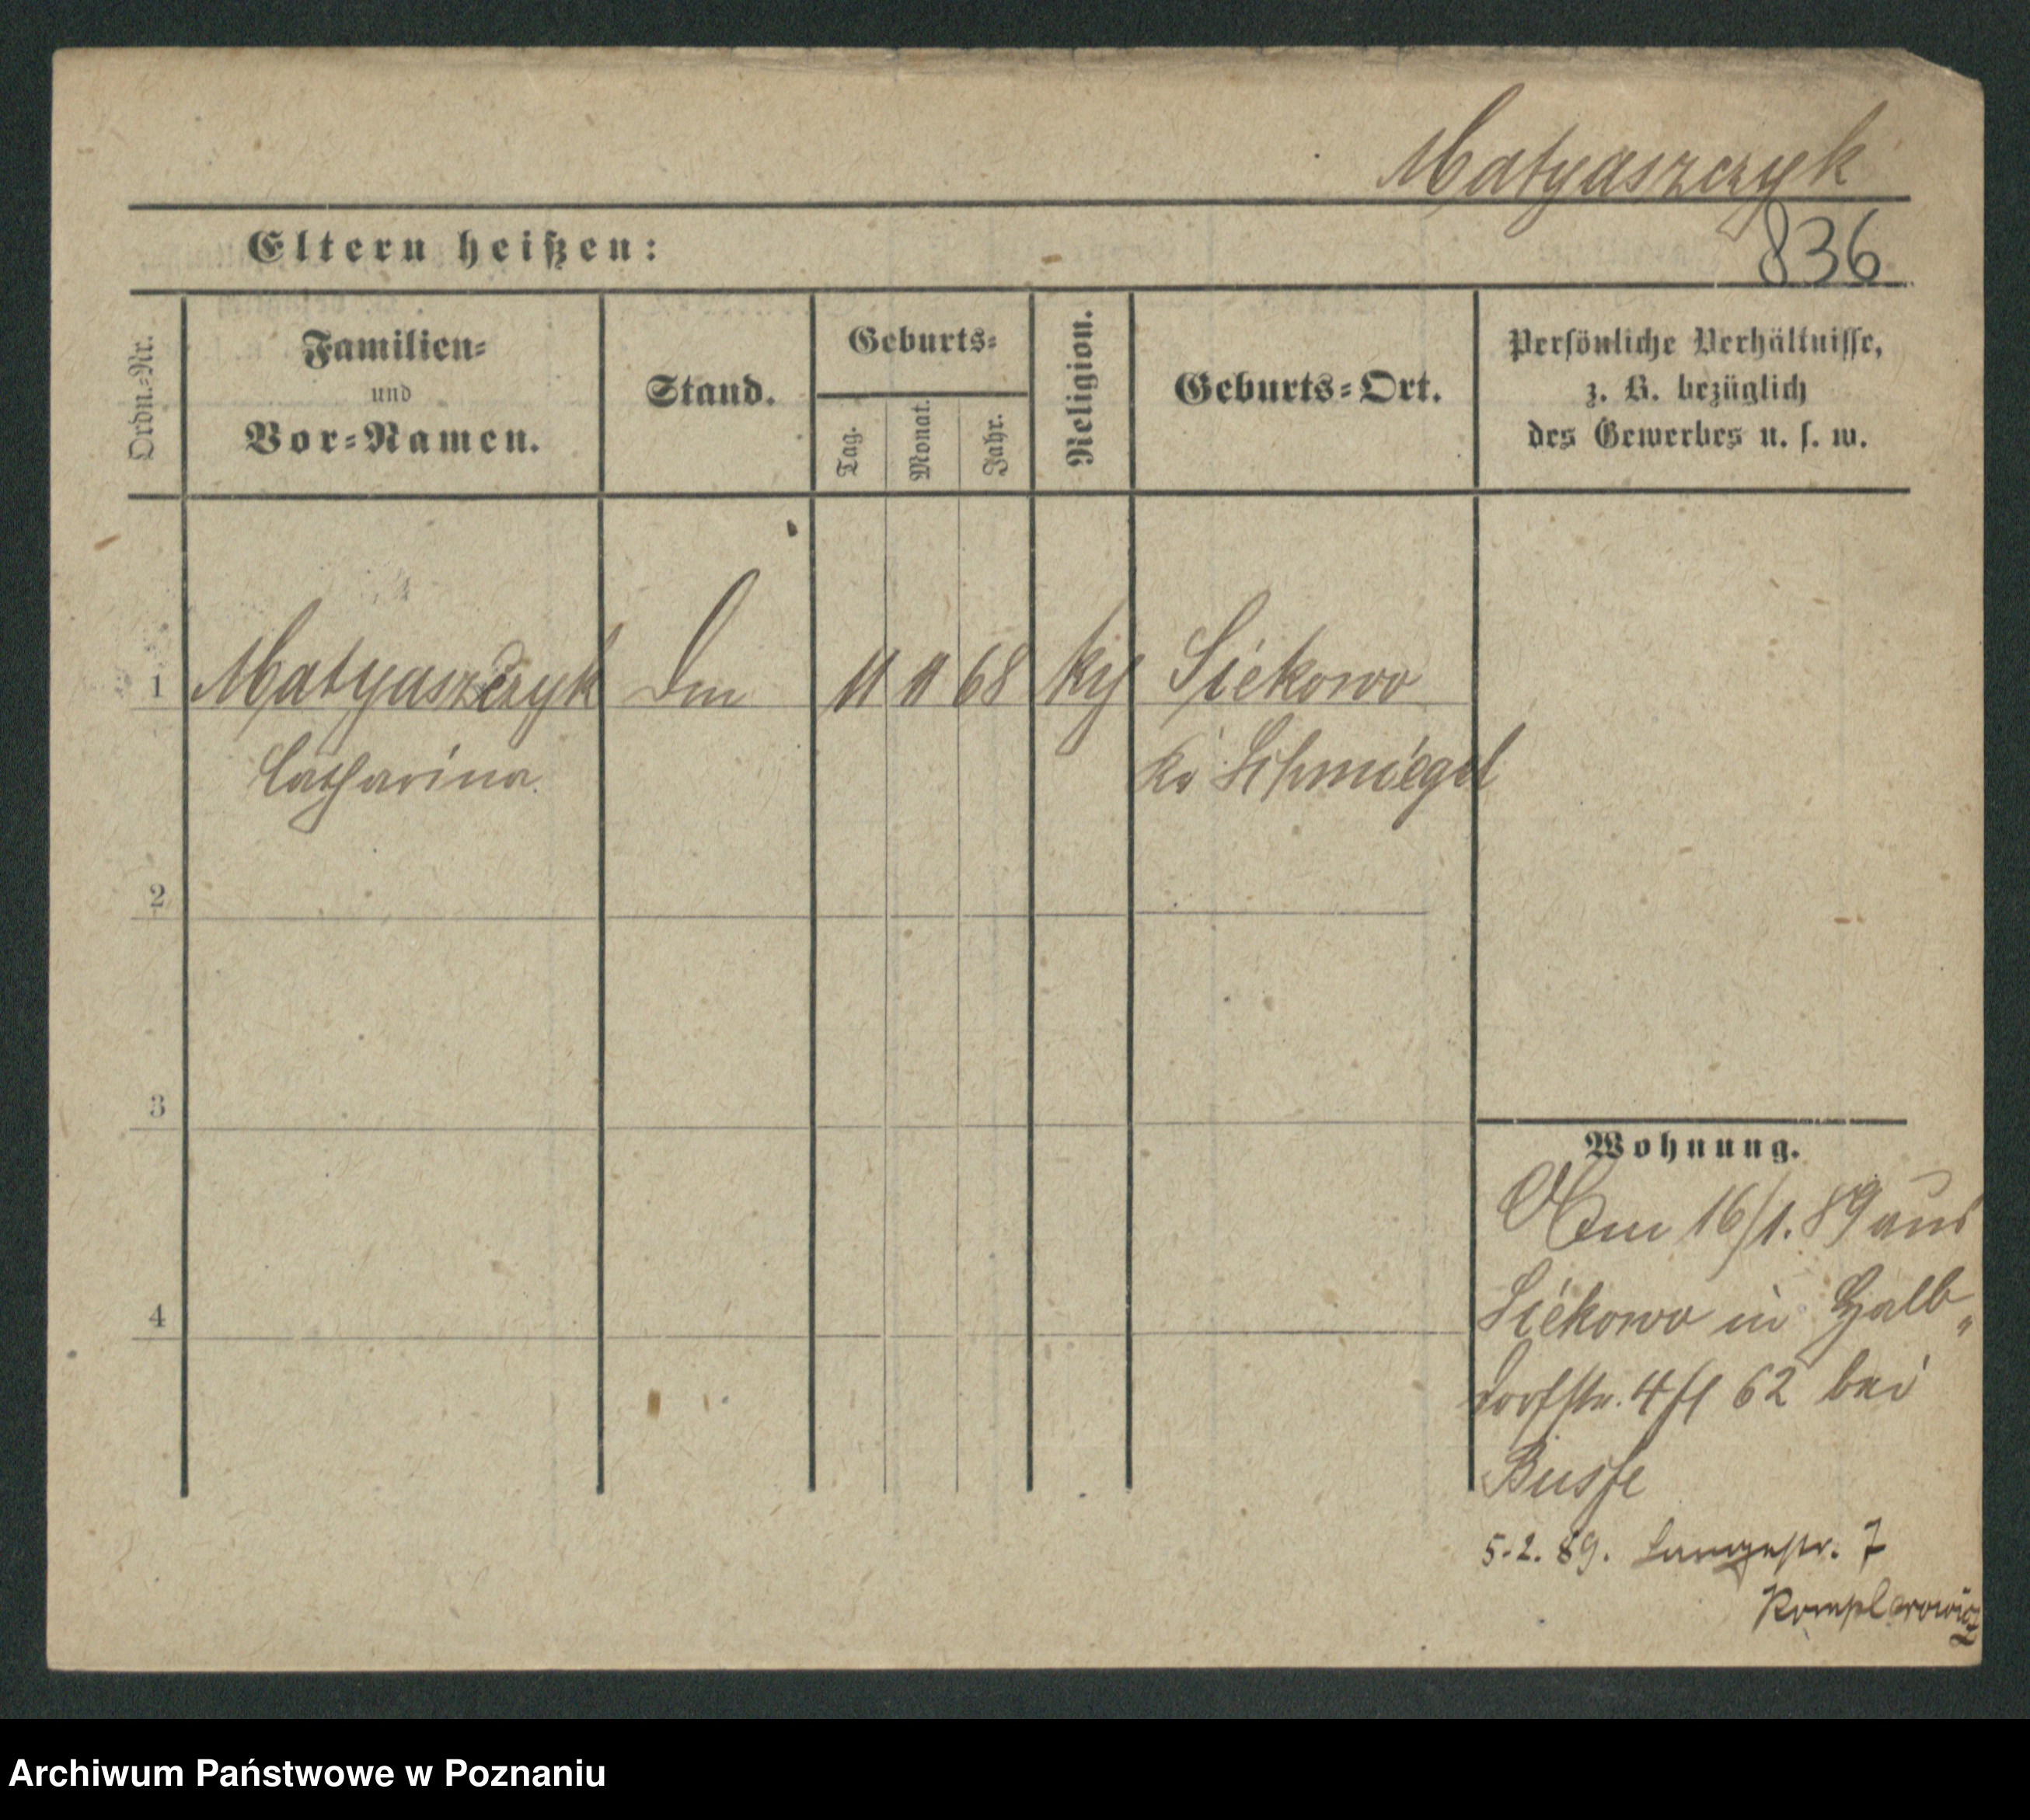 Matyaszczyk
836
Eltern heißen:
Ordn.-Nr.
Familien-
und
Vor-Namen.
Stand.
Geburts-
Tag.
Monat.
Jahr.
Religion.
Geburts-Ort.
Persönliche Verhältnisse,
z. B. bezüglich
des Gewerbes u. s. w.
1 Matyaszczyk 11 11 68 Siekowo
Catharina. Kr Schmiegel
2
3
4
Wohnung.
Am 16/1. 89 aus
Siekowo in Halb„
dorfstr. 4 62 bei
Busse
5.2.89. Langestr. 7
Archiwum Państwowe w Poznaniu